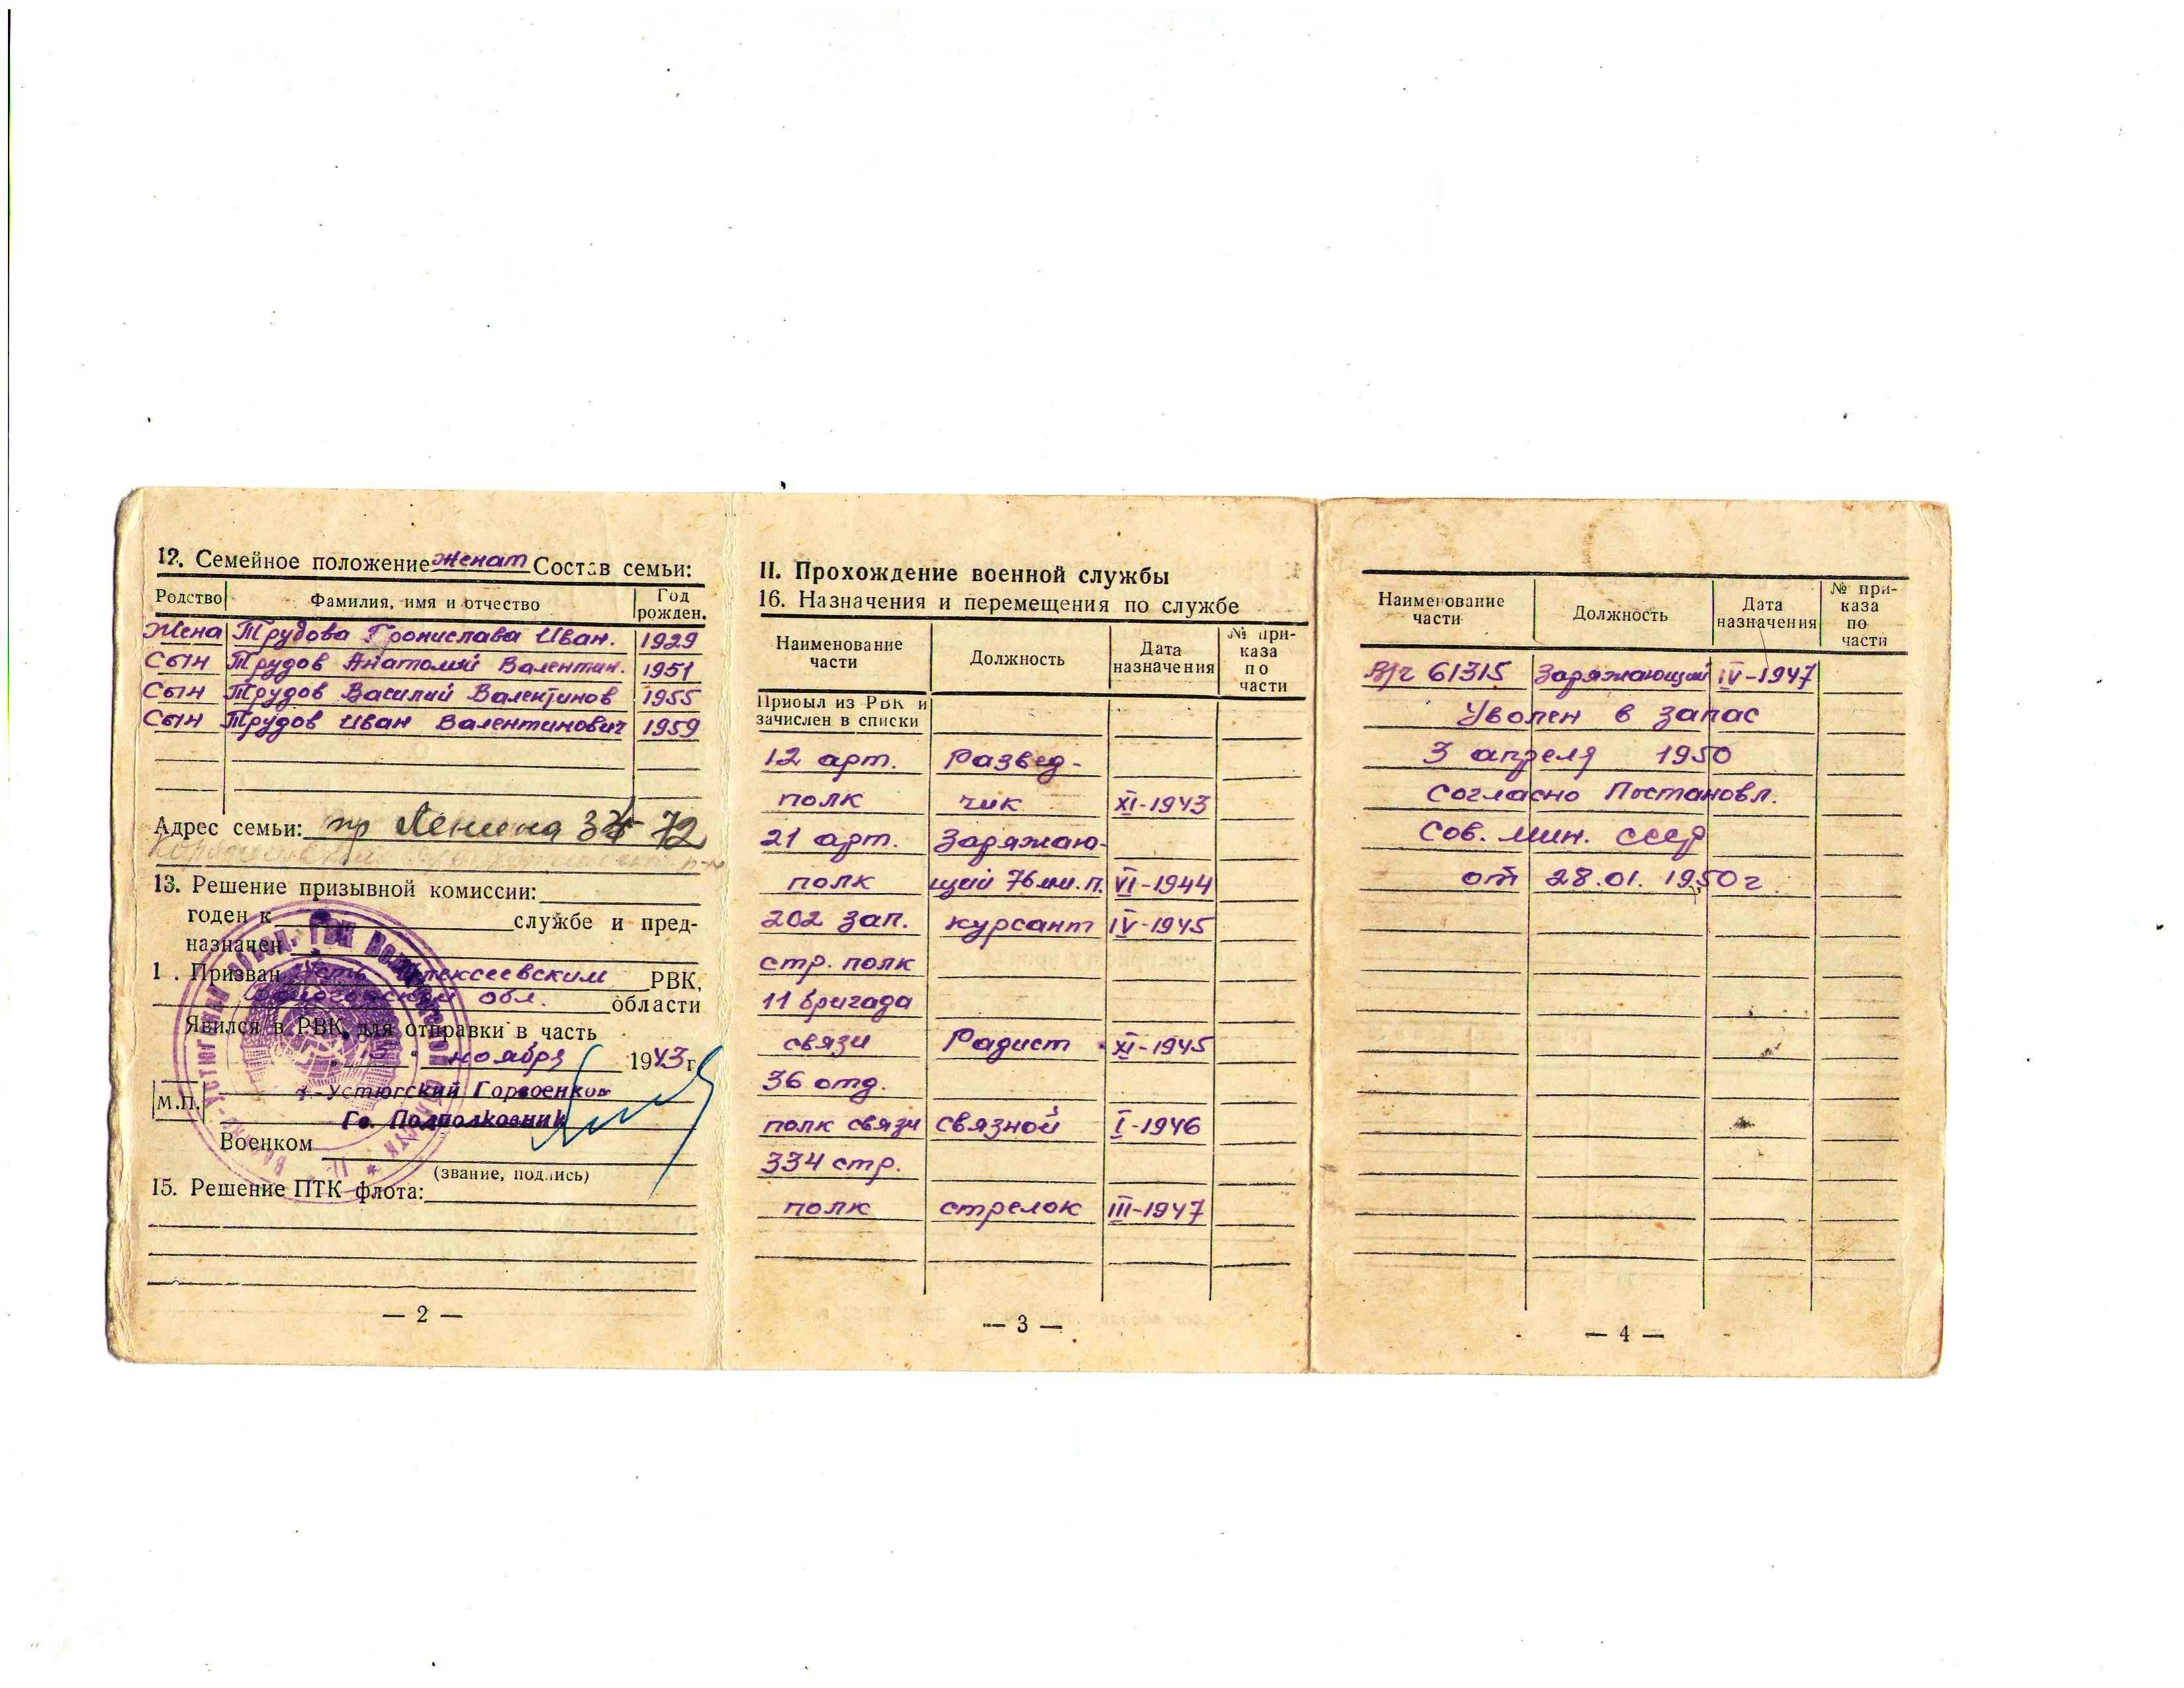 12. Семейное положение женат Состав семьи:
Родство Фамилия, имя и отчество Год рожден.
Жена Трудова Бронислава Иван. 1929
Сын Трудов Анатолий Валентин. 1951
Сын Трудов Василий Валентинов 1955
Сын Трудов Иван Валентинович 1959
Адрес семьи: пр Ленина 72
13. Решение призывной комиссии:
годен к службе и пред-
назначен
1 . Призван Усть Алексеевским РВК,
Вологодской обл. области
Явился в РВК для отправки в часть
ноября 1943 г
В.-Устюгский Горвоенком
Гв. Подполковник
М.П.
Военком
(звание, подпись)
15. Решение ПТК флота:
— 2 —
II. Прохождение военной службы
16. Назначения и перемещения по службе
Наименование части Должность Дата назначения № при-каза по части
Прибыл из РВК и
зачислен в списки
12 арт. Развед-
полк чик XI-1943
21 арт. Заряжаю-
полк щий 76 мм. п. VI-1944
202 зап. курсант IV-1945
стр. полк
11 бригада
связи Радист XI-1945
36 отд.
полк связи связной I-1946
334 стр.
полк стрелок III-1947
— 3 —
Наименование части Должность Дата назначения № при-каза по части
В/ч 61315 Заряжающий IV-1947
Уволен в запас
3 апреля 1950
Согласно Постановл.
Сов. Мин. СССР
от 28.01.1950г
— 4 —